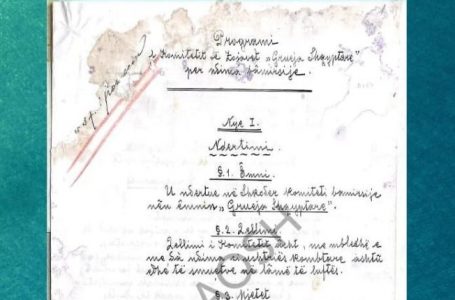 Programi
i Komitetit të Zojavet „Grueja Shqyptare”
per ndima bâmirsije.
Nye I.
Ndertimi.
§.1. Êmni.
U ndertue në Shkoder komiteti bamirsije
nên êmnin „Grueja Shqyptare”.
§.2. Qellimi.
Qellimi i Komitetit âsht, me mbledhë e
me dâ ndima ushtriës kombtare âshtû
edhe të smuetve në lâmë të luftës.
§.3. Mjetet
AQSH